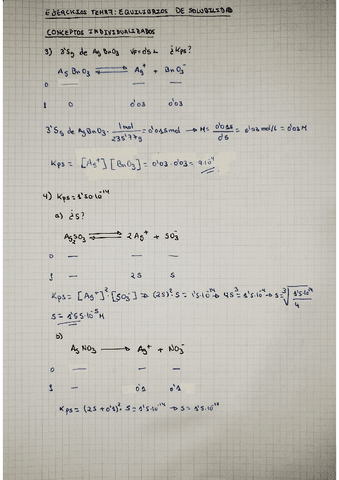 EJERCICIOS TEMA 7: EQUILIBRIOS DE SOLUBILIDAD
CONCEPTOS INDIVIDUALIZADOS
3) 3'5g de AgBrO3 VF=0'5L ¿Kps?
AgBrO3 ⇌ Ag+ + BrO3-
0 — — —
1 0 0'03 0'03
3'5g de AgBrO3 · 1mol/235'77g = 0'015mol → M= 0'015/0'5 = 0'03 mol/L = 0'03M
Kps = [Ag+][BrO3-] = 0'03·0'03 = 9·10-4
4) Kps = 1'50·10-14
a) ¿S?
Ag2SO3 ⇌ 2Ag+ + SO3-
0 — — —
1 — 2S S
Kps = [Ag+]2·[SO3-] → (2S)2·S = 1'5·10-14 → 4S3 = 1'5·10-14 → S = 3√1'5·10-14/4
S = 1'55·10-5 M
b)
AgNO3 → Ag+ + NO3-
0 — — —
1 — 0'1 0'1
Kps = (2S + 0'1)2·S = 1'5·10-14 → S = 1'5·10-12